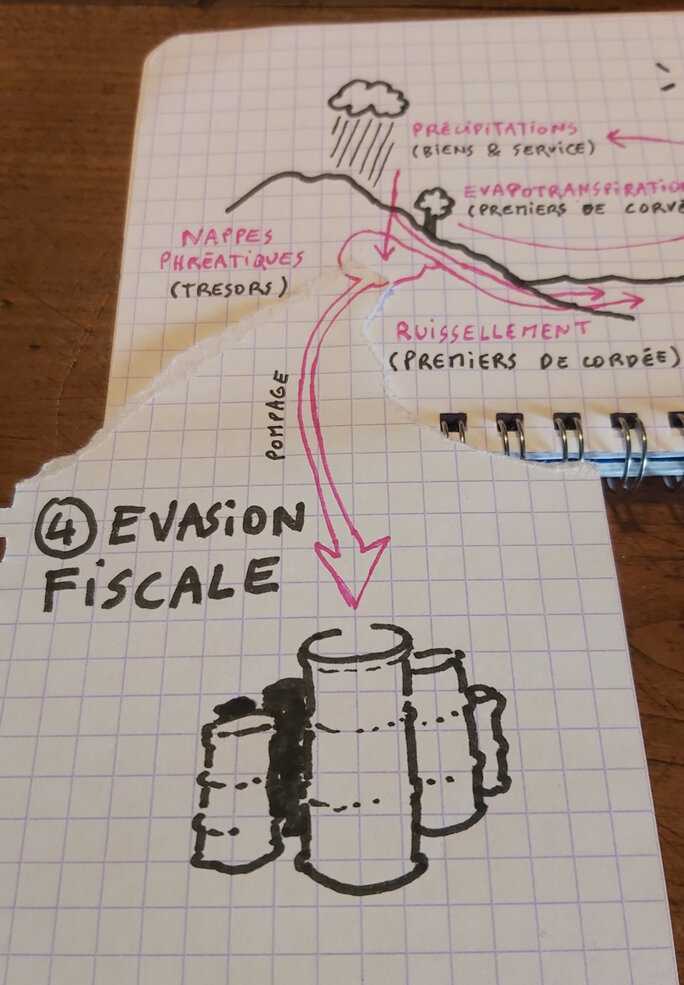 PRÉCIPITATIONS
(BIENS & SERVICE)
EVAPOTRANSPIRATIO
(PREMIERS DE CORVÉ
NAPPES
PHRÉATIQUES
(TRESORS)
RUISSELLEMENT
(PREMIERS DE CORDÉE)
POMPAGE
4 EVASION
FISCALE